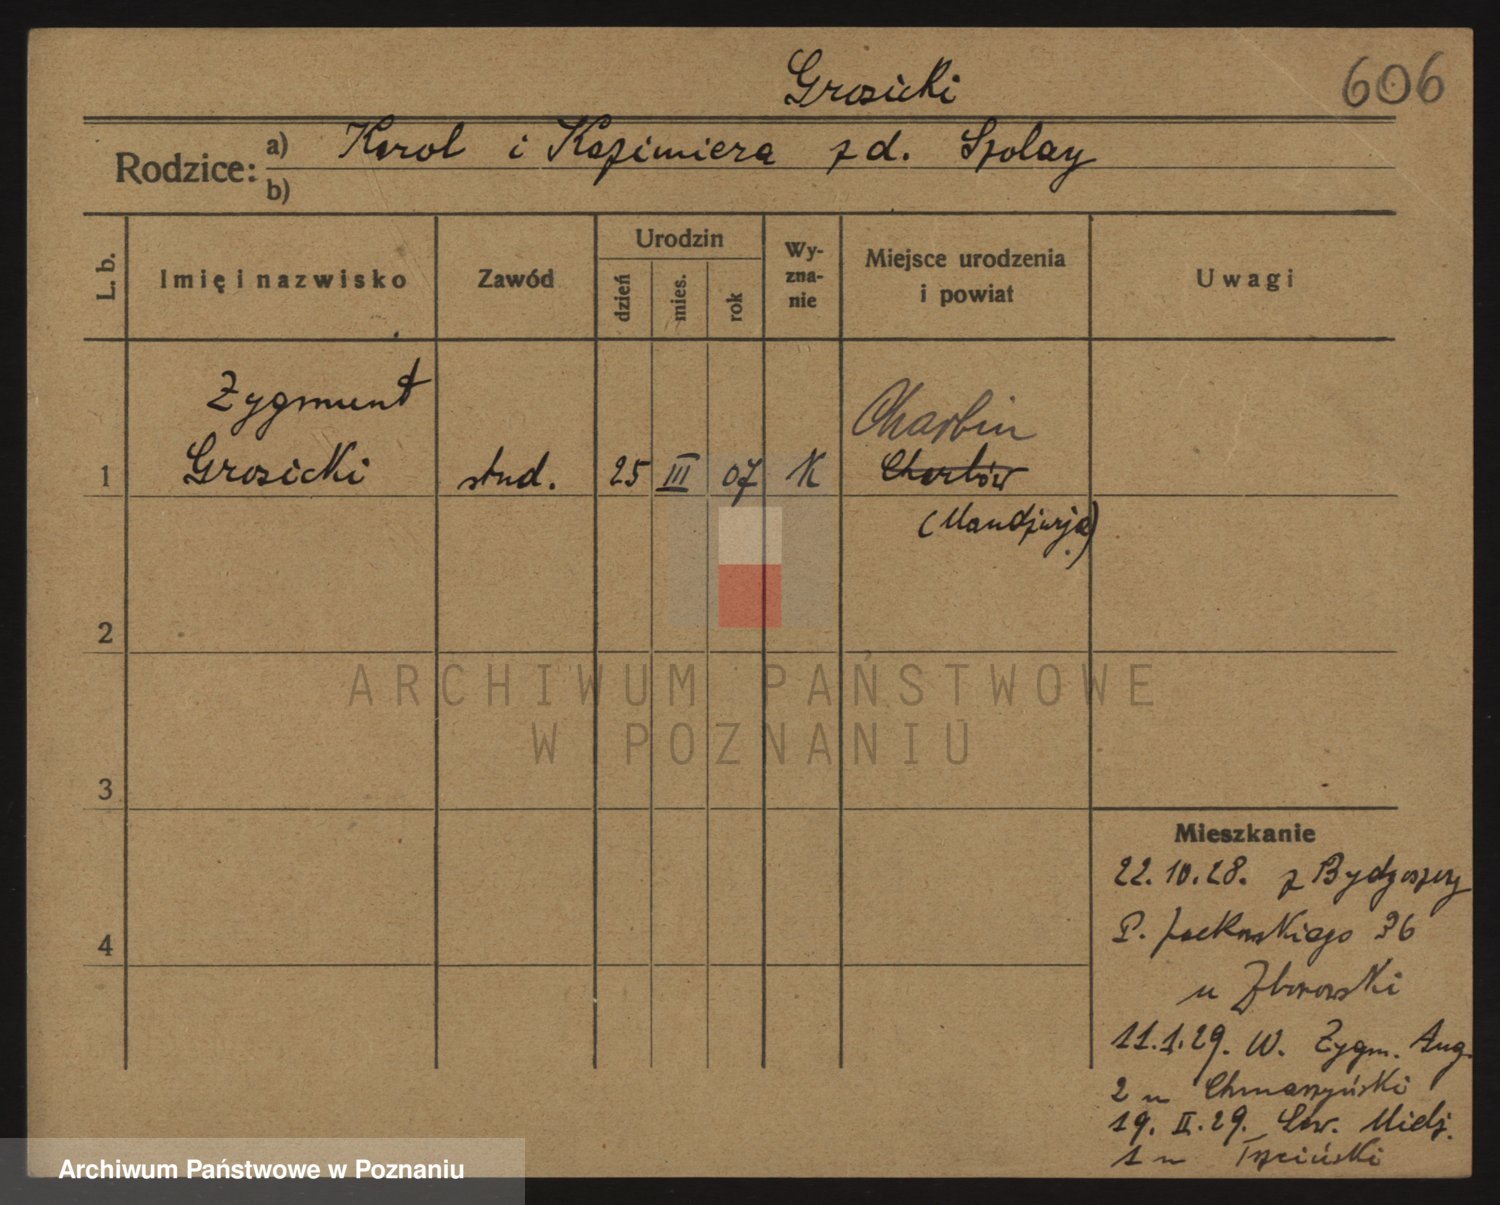 Grosicki
606
Rodzice:
a) Karol i Kazimiera z d. Szolay
b)
L. b.
Imię i nazwisko
Zawód
Urodzin
dzień
mies.
rok
Wy-
zna-
nie
Miejsce urodzenia
i powiat
Uwagi
Zygmunt
Charbin
1 Grosicki stud. 25 III 07 K
(Mandżurja)
2
ARCHIWUM PAŃSTWOWE
W POZNANIU
3
Mieszkanie
22.10.28. z Bydgoszczy
P. Jackowskiego 36
4
u Zborowski
11.1.29. W. Zygm. Aug.
2 u
19. II. 29. Mielż.
1 u Trzciński
Archiwum Państwowe w Poznaniu